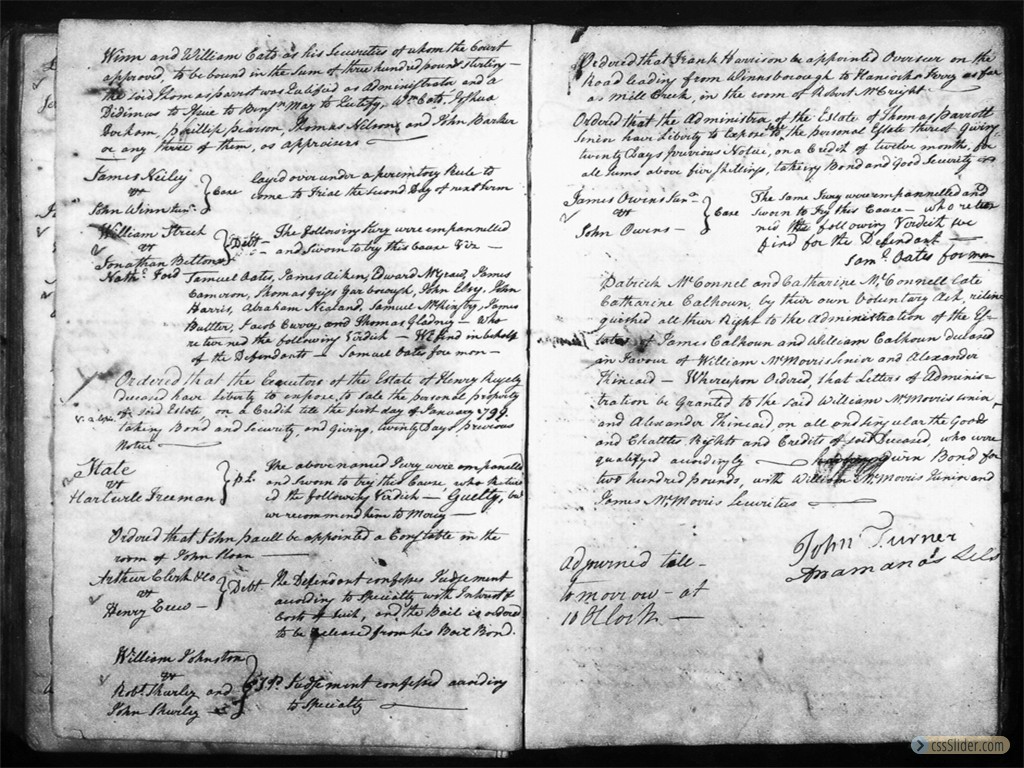 Winn and William Cato as his Securities of whom the Court
approved, to be bound in the Sum of three hundred pounds sterling —
the said Thomas parrot was Qualified as Administrator and a
Didimus to Issue to Benjn May to Certify, Wm Cato, Joshua
Durham, phillip pearson, Thomas Nelson, and John Barker
or any three of them, as appraisers —
James Neiley
vs
John Winn Junr
Case
layed over under a perimtory Rule to
come to Trial the Second Day of next term
William Streek
vs
Jonathan Belton
Nathl Ford
Debt —
The following Jury were empannelled
and Sworn to try this Cause Viz —
Samuel Oates, James Aiken, Edward McGraw, James
Cameron, Thomas Grigs Garborough, John Ebry, John
Harris, Abraham Nealand, Samuel McKinstry, James
Buttler, Jacob Curry, and Thomas Gladney — who
returned the following Virdict — We find in behalf
of the Defendants — Samuel Oates foreman —
Ordered that the Executors of the Estate of Henry
deceased have liberty to expose to sale the personal property
of said Estate on a Credit till the first day of January 1799.
taking Bond and Security, and giving twenty Days previous
Notice
State
vs
Hartwele Freeman
pL
The above named Jury were empanelled
and Sworn to try this Cause who Return
ed the following Virdict — Guelty, but
we recommend him to Mercy —
Ordered that John paull be appointed a Constable in the
room of John Sloan —
Arthur Clerk & Co
vs
Henry —
Debt
The Defendant confesses Judgement
according to Specialty with Interest &
Costs of Suit, and the Bail is ordered
to be Released from his Bail Bond.
William Johnston
vs
Robt Shurley and
John Shurley —
Judgement confessed according
to Specialty —
Ordered that Frank Harrison be appointed Overseer on the
Road leading from Winnsborough to Hancocks Ferry as far
as Mill Creek, in the room of Robert McCright.
Ordered that the Administra of the Estate of Thomas Parrott
Senior have Liberty to Expose the personal Estate thereof Giving
twenty Days previous Notice, on a Credit of twelve months, for
all sums above five shillings, taking Bond and good Security
James Owens Junr
vs
John Owens —
Case
The Same Jury were empannelled and
Sworn to Try this Cause — who retur
ned the following Virdict we
find for the Defendant —
Saml Oates foreman
Patrick McConnel and Catharine McConnell late
Catharine Calhoun, by their own Voluntary Act, relin
quished all their Right to the Administration of the Es-
tates of James Calhoun and William Calhoun deceased
in Favour of William McMorris Senior and Alexander
Kincaid — Whereupon Ordered, that Letters of Adminis-
tration be Granted to the said William McMorris Senior,
and Alexander Kincaid, on all and singular the Goods
and Chattles Rights and Credits of said Deceased, who were
qualified accordingly — given Bond for
two hundred pounds, with William McMorris Junior and
James McMorris Securities —
John Turner
Anamanas Lile
Adjourned till
tomorrow at
10 OClock. —
cssSlider.com